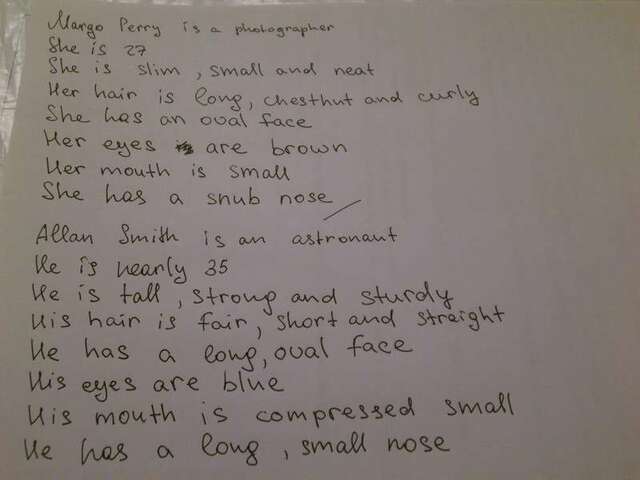 Margo Perry is a photographer
She is 27
She is slim, small and neat
Her hair is long, chesthut and curly
She has an oval face
Her eyes are brown
Her mouth is small
She has a snub nose
Allan Smith is an astronaut
He is nearly 35
He is tall, strong and sturdy
His hair is fair, short and straight
He has a long, oval face
His eyes are blue
His mouth is compressed small
He has a long, small nose